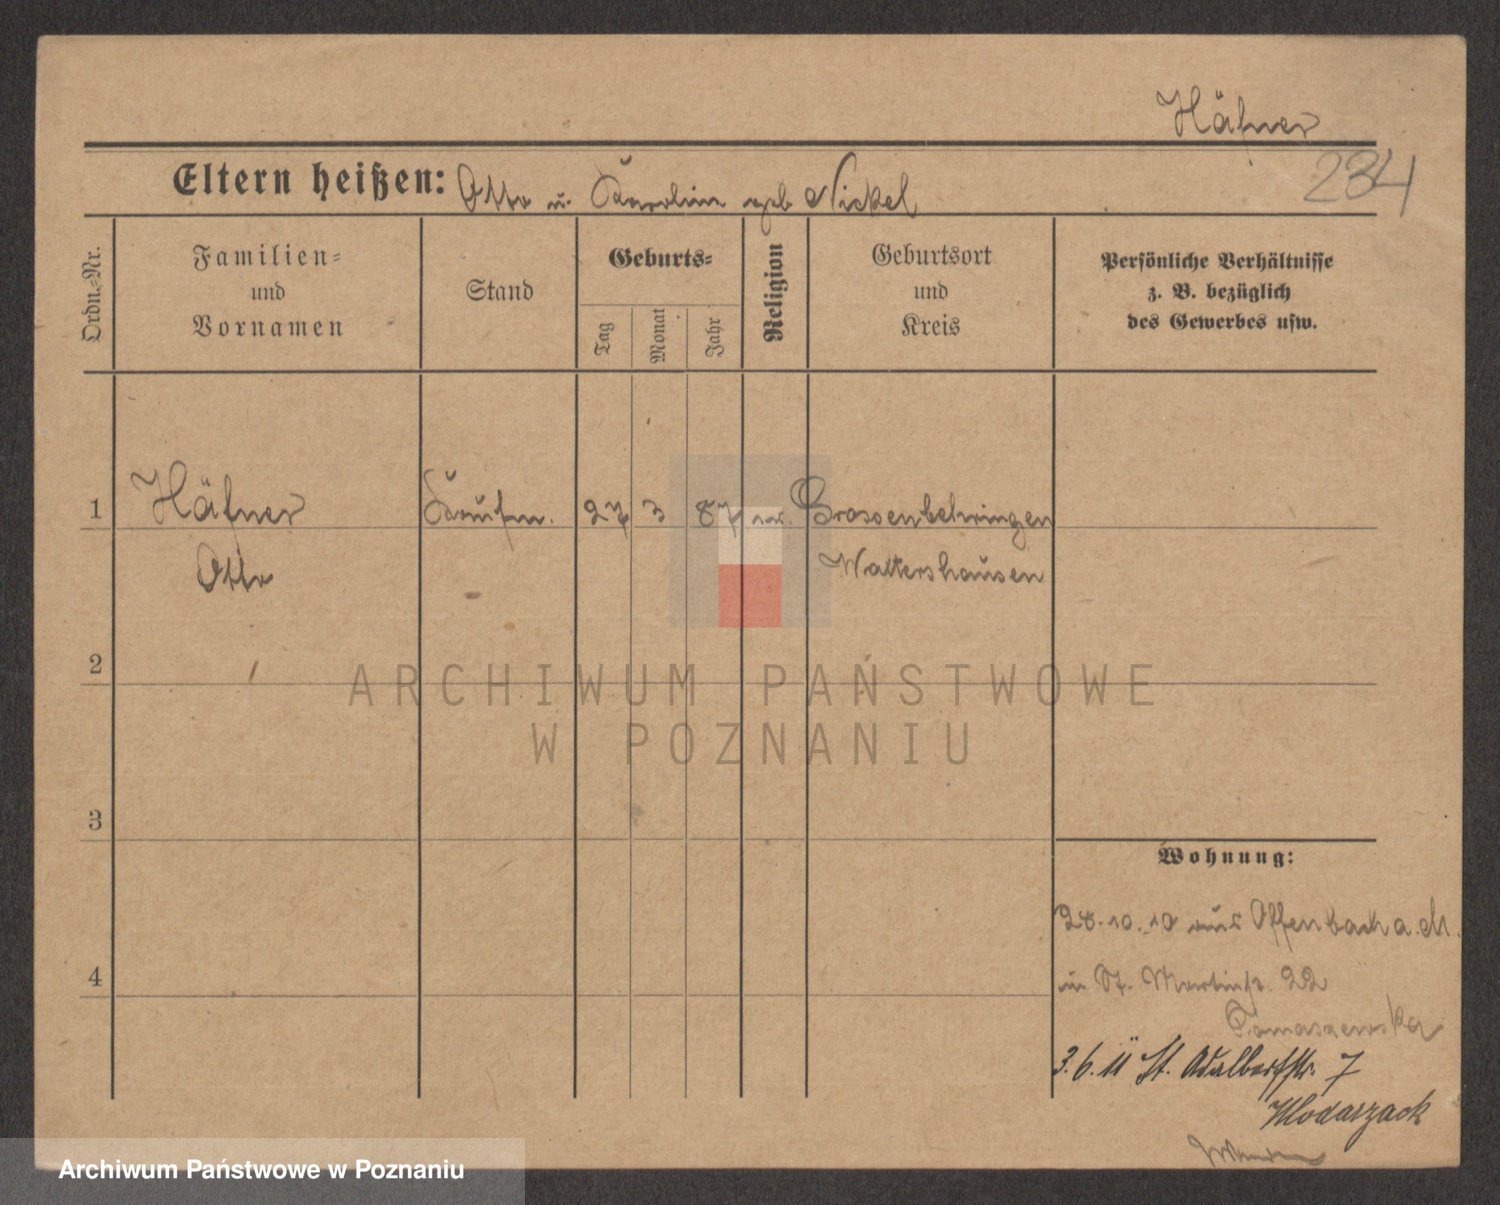 Häfner
234
Eltern heißen: Otto u. Karolin geb Nickel
Ordn.=Nr.
Familien=
und
Vornamen
Stand
Geburts=
Tag
Monat
Jahr
Religion
Geburtsort
und
Kreis
Persönliche Verhältnisse
z. B. bezüglich
des Gewerbes usw.
1 Häfner Kaufm. 27 3 87 Grossenbehringen
Otto Waltershausen
2
3
4
Wohnung:
28.10.10 aus Offenbach a. M.
in St. Martinstr. 22
Tomaszewska
3.6.11 St. Adalbertstr. 7
Wlodarzack
ARCHIWUM PAŃSTWOWE
W POZNANIU
Archiwum Państwowe w Poznaniu